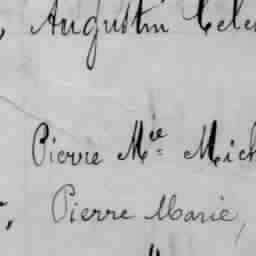 , Augustin Cele
Pierre Mie Mich
, Pierre Marie,